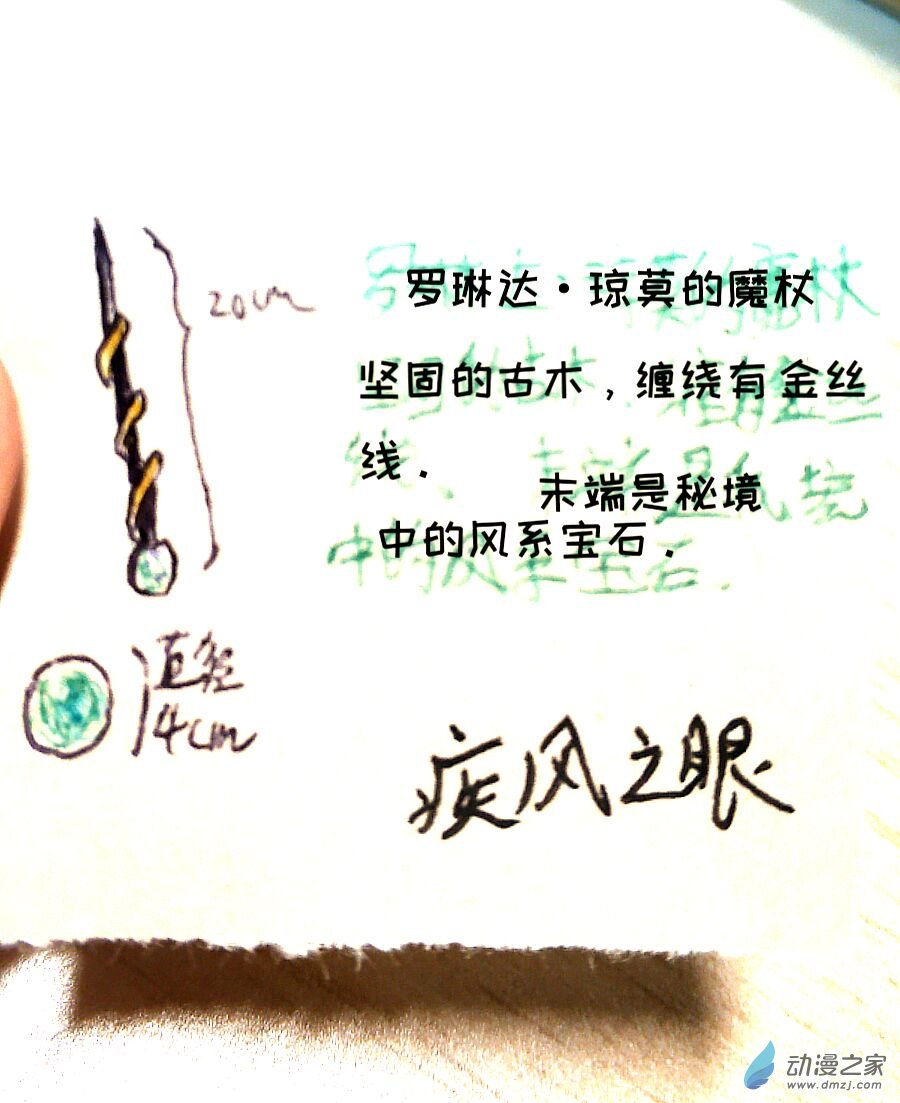 20cm
罗琳达·琼莫的魔杖
坚固的古木，缠绕有金丝
线．
末端是秘境
中的风系宝石．
直径
4cm
疾风之眼
动漫之家
www.dmzj.com